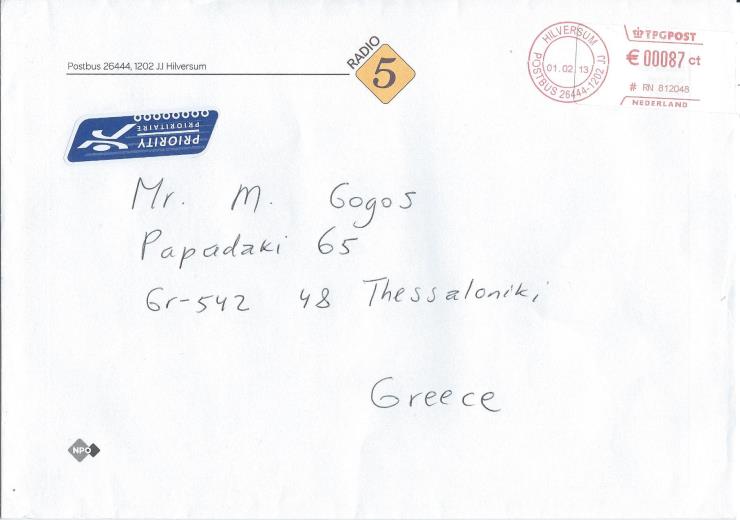 Postbus 26444, 1202 JJ Hilversum
RADIO
5
HILVERSUM
01.02.13
POSTBUS 26444-1202 JJ
TPGPOST
€ 00087 ct
# RN 812048
NEDERLAND
PRIORITY
PRIORITAIRE
Mr. M. Gogos
Papadaki 65
Gr-542 48 Thessaloniki
Greece
NPO